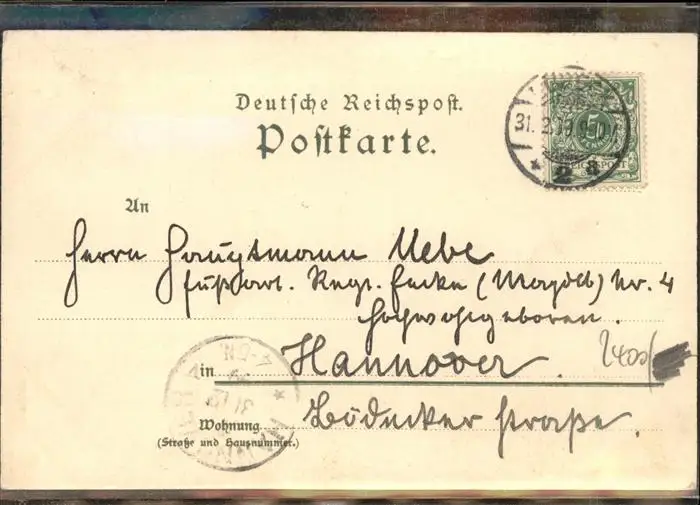 Deutsche Reichspost.
Postkarte.
5
PFENNIG
REICHSPOST
31.
2 a
An
Herrn Hauptmann Uebe
Fußart. Regt. Encke (Magdeb) Nr. 4
Hochwohlgeboren.
in Hannover.
2400/
Wohnung Bödekerstraße.
(Straße und Hausnummer.)